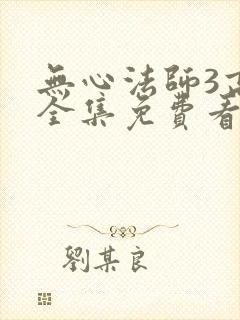 無心法師3
全集免費看
劉某良